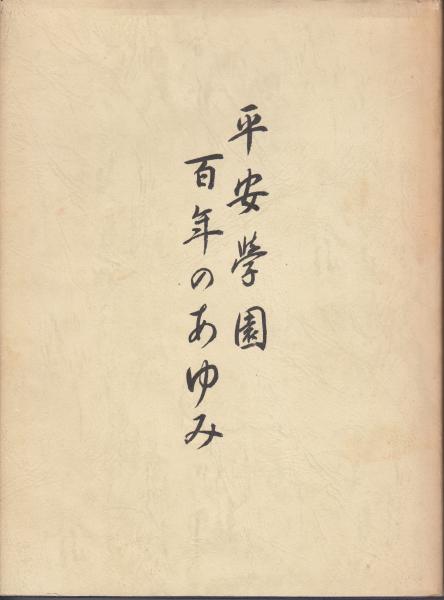 平安學園
百年のあゆみ